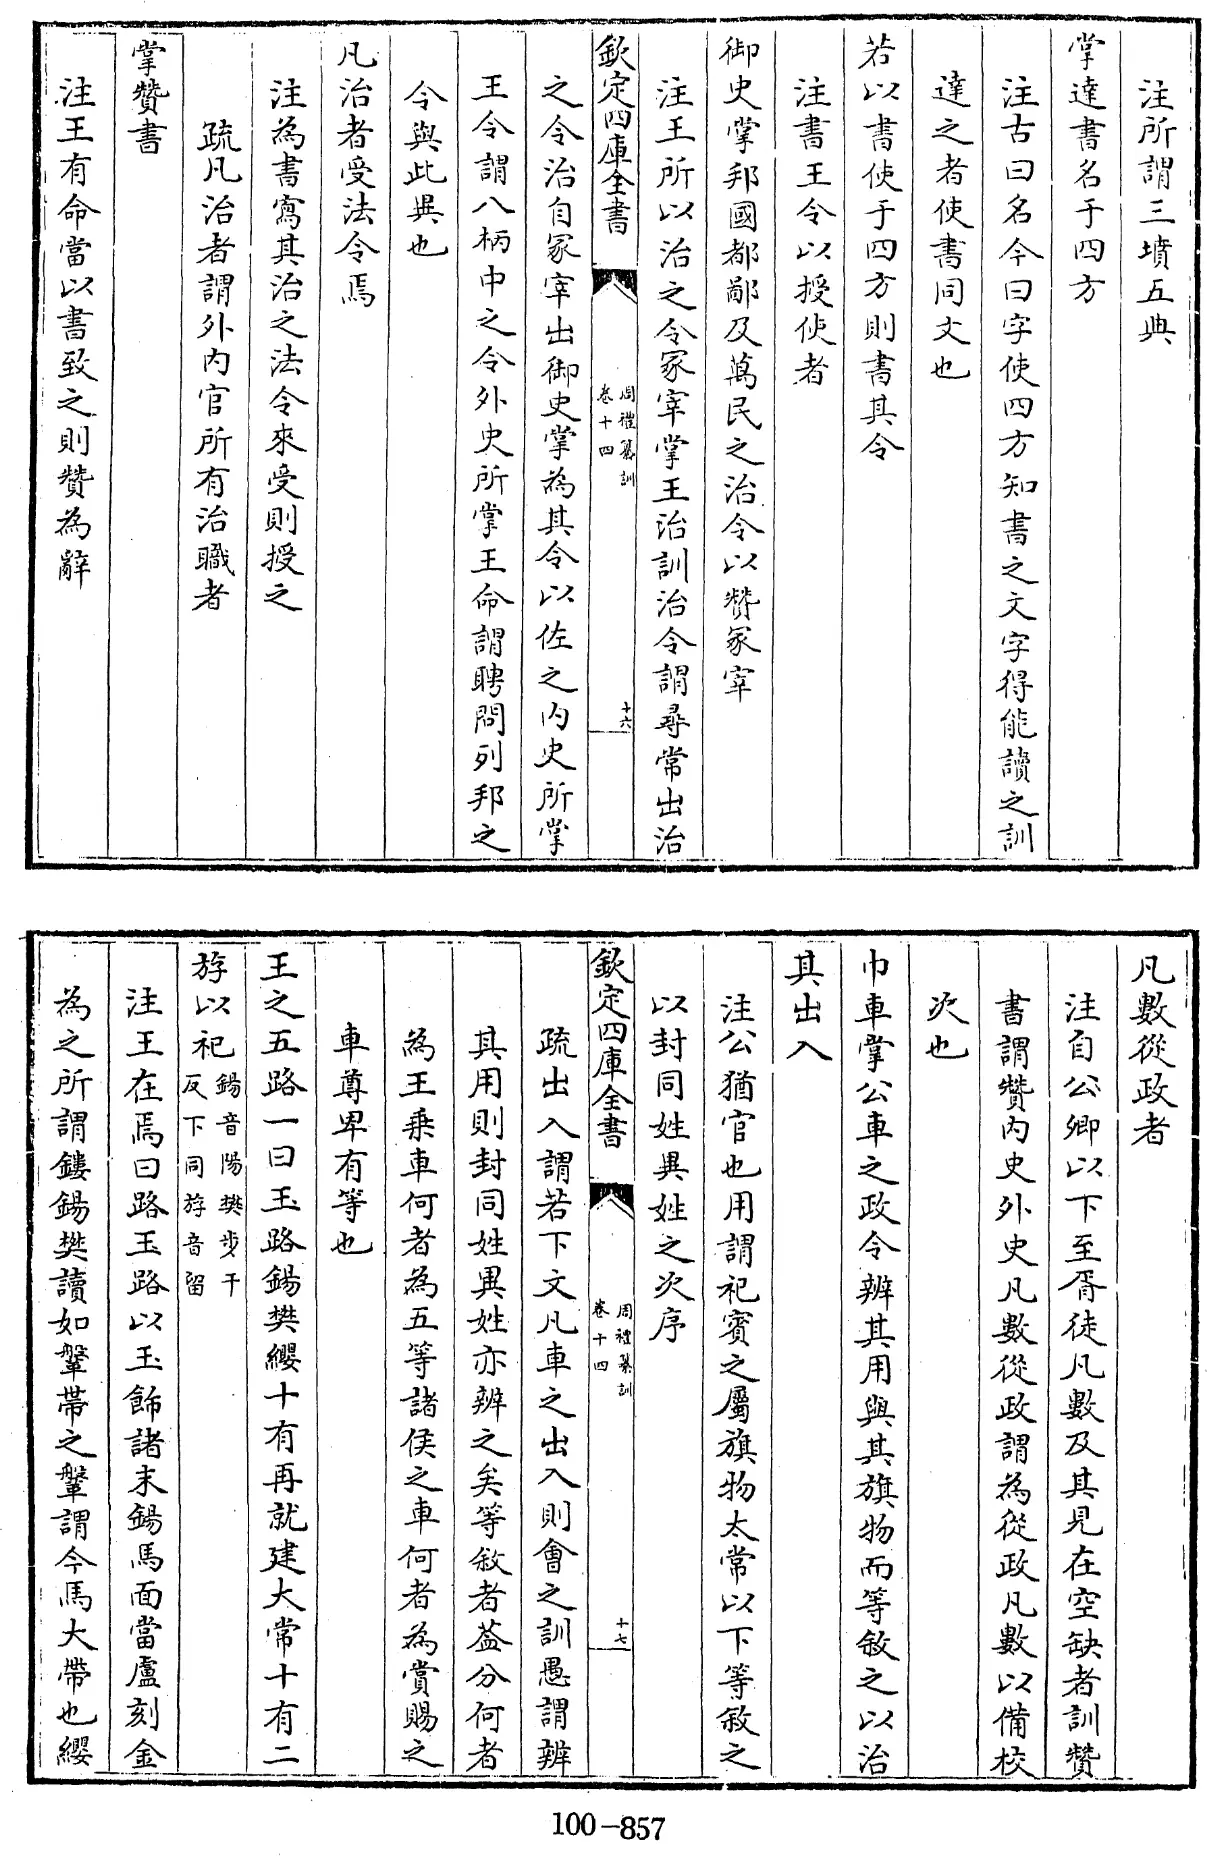 注所謂三墳五典
掌達書名于四方
注古曰名今曰字使四方知書之文字得能讀之訓
達之者使書同文也
若以書使于四方則書其令
注書王令以授使者
御史掌邦國都鄙及萬民之治令以贊冢宰
注王所以治之令冢宰掌王治訓治令謂尋常出治
欽定四庫全書
周禮纂訓
卷十四
十六
之令治自冢宰出御史掌為其令以佐之内史所掌
王令謂八柄中之令外史所掌王命謂聘問列邦之
令與此異也
凡治者受法令焉
注為書寫其治之法令來受則授之
疏凡治者謂外内官所有治職者
掌贊書
注王有命當以書致之則贊為辭
凡數從政者
注自公卿以下至胥徒凡數及其見在空缺者訓贊
書謂贊内史外史凡數從政謂為從政凡數以備校
次也
巾車掌公車之政令辨其用與其旗物而等敘之以治
其出入
注公猶官也用謂祀賓之屬旗物太常以下等敘之
以封同姓異姓之次序
欽定四庫全書
周禮纂訓
卷十四
十七
疏出入謂若下文凡車之出入則會之訓愚謂辨
其用則封同姓異姓亦辨之矣等敘者葢分何者
為王乗車何者為五等諸侯之車何者為賞賜之
車尊卑有等也
王之五路一曰玉路鍚樊纓十有再就建大常十有二
斿以祀鍚音陽樊步干反下同斿音留
注王在焉曰路玉路以玉飾諸末鍚馬面當盧刻金
為之所謂鏤鍚樊讀如鞶帶之鞶謂今馬大帶也纓
100-857